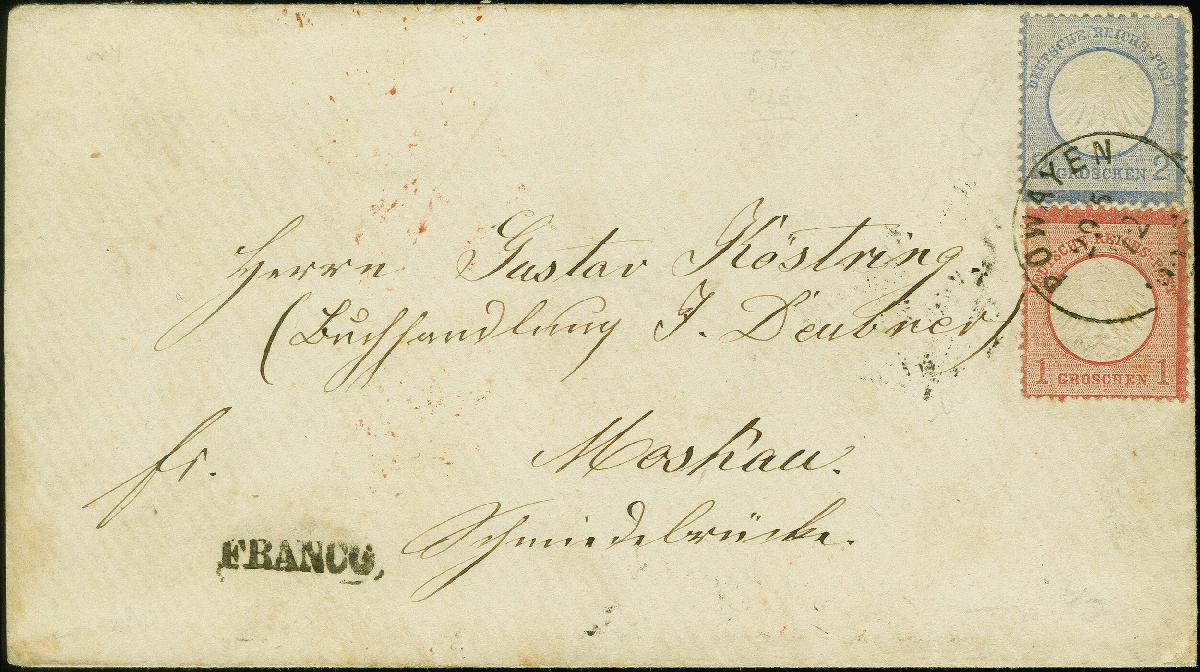 DEUTSCHE REICHS-POST
2 GROSCHEN 2
POWAYEN
DEUTSCHE REICHS-POST
1 GROSCHEN 1
Herrn Gustav Köstring
(Buchhandlung J. Deubner)
fr. Moskau.
Schmiedebrücke.
FRANCO,